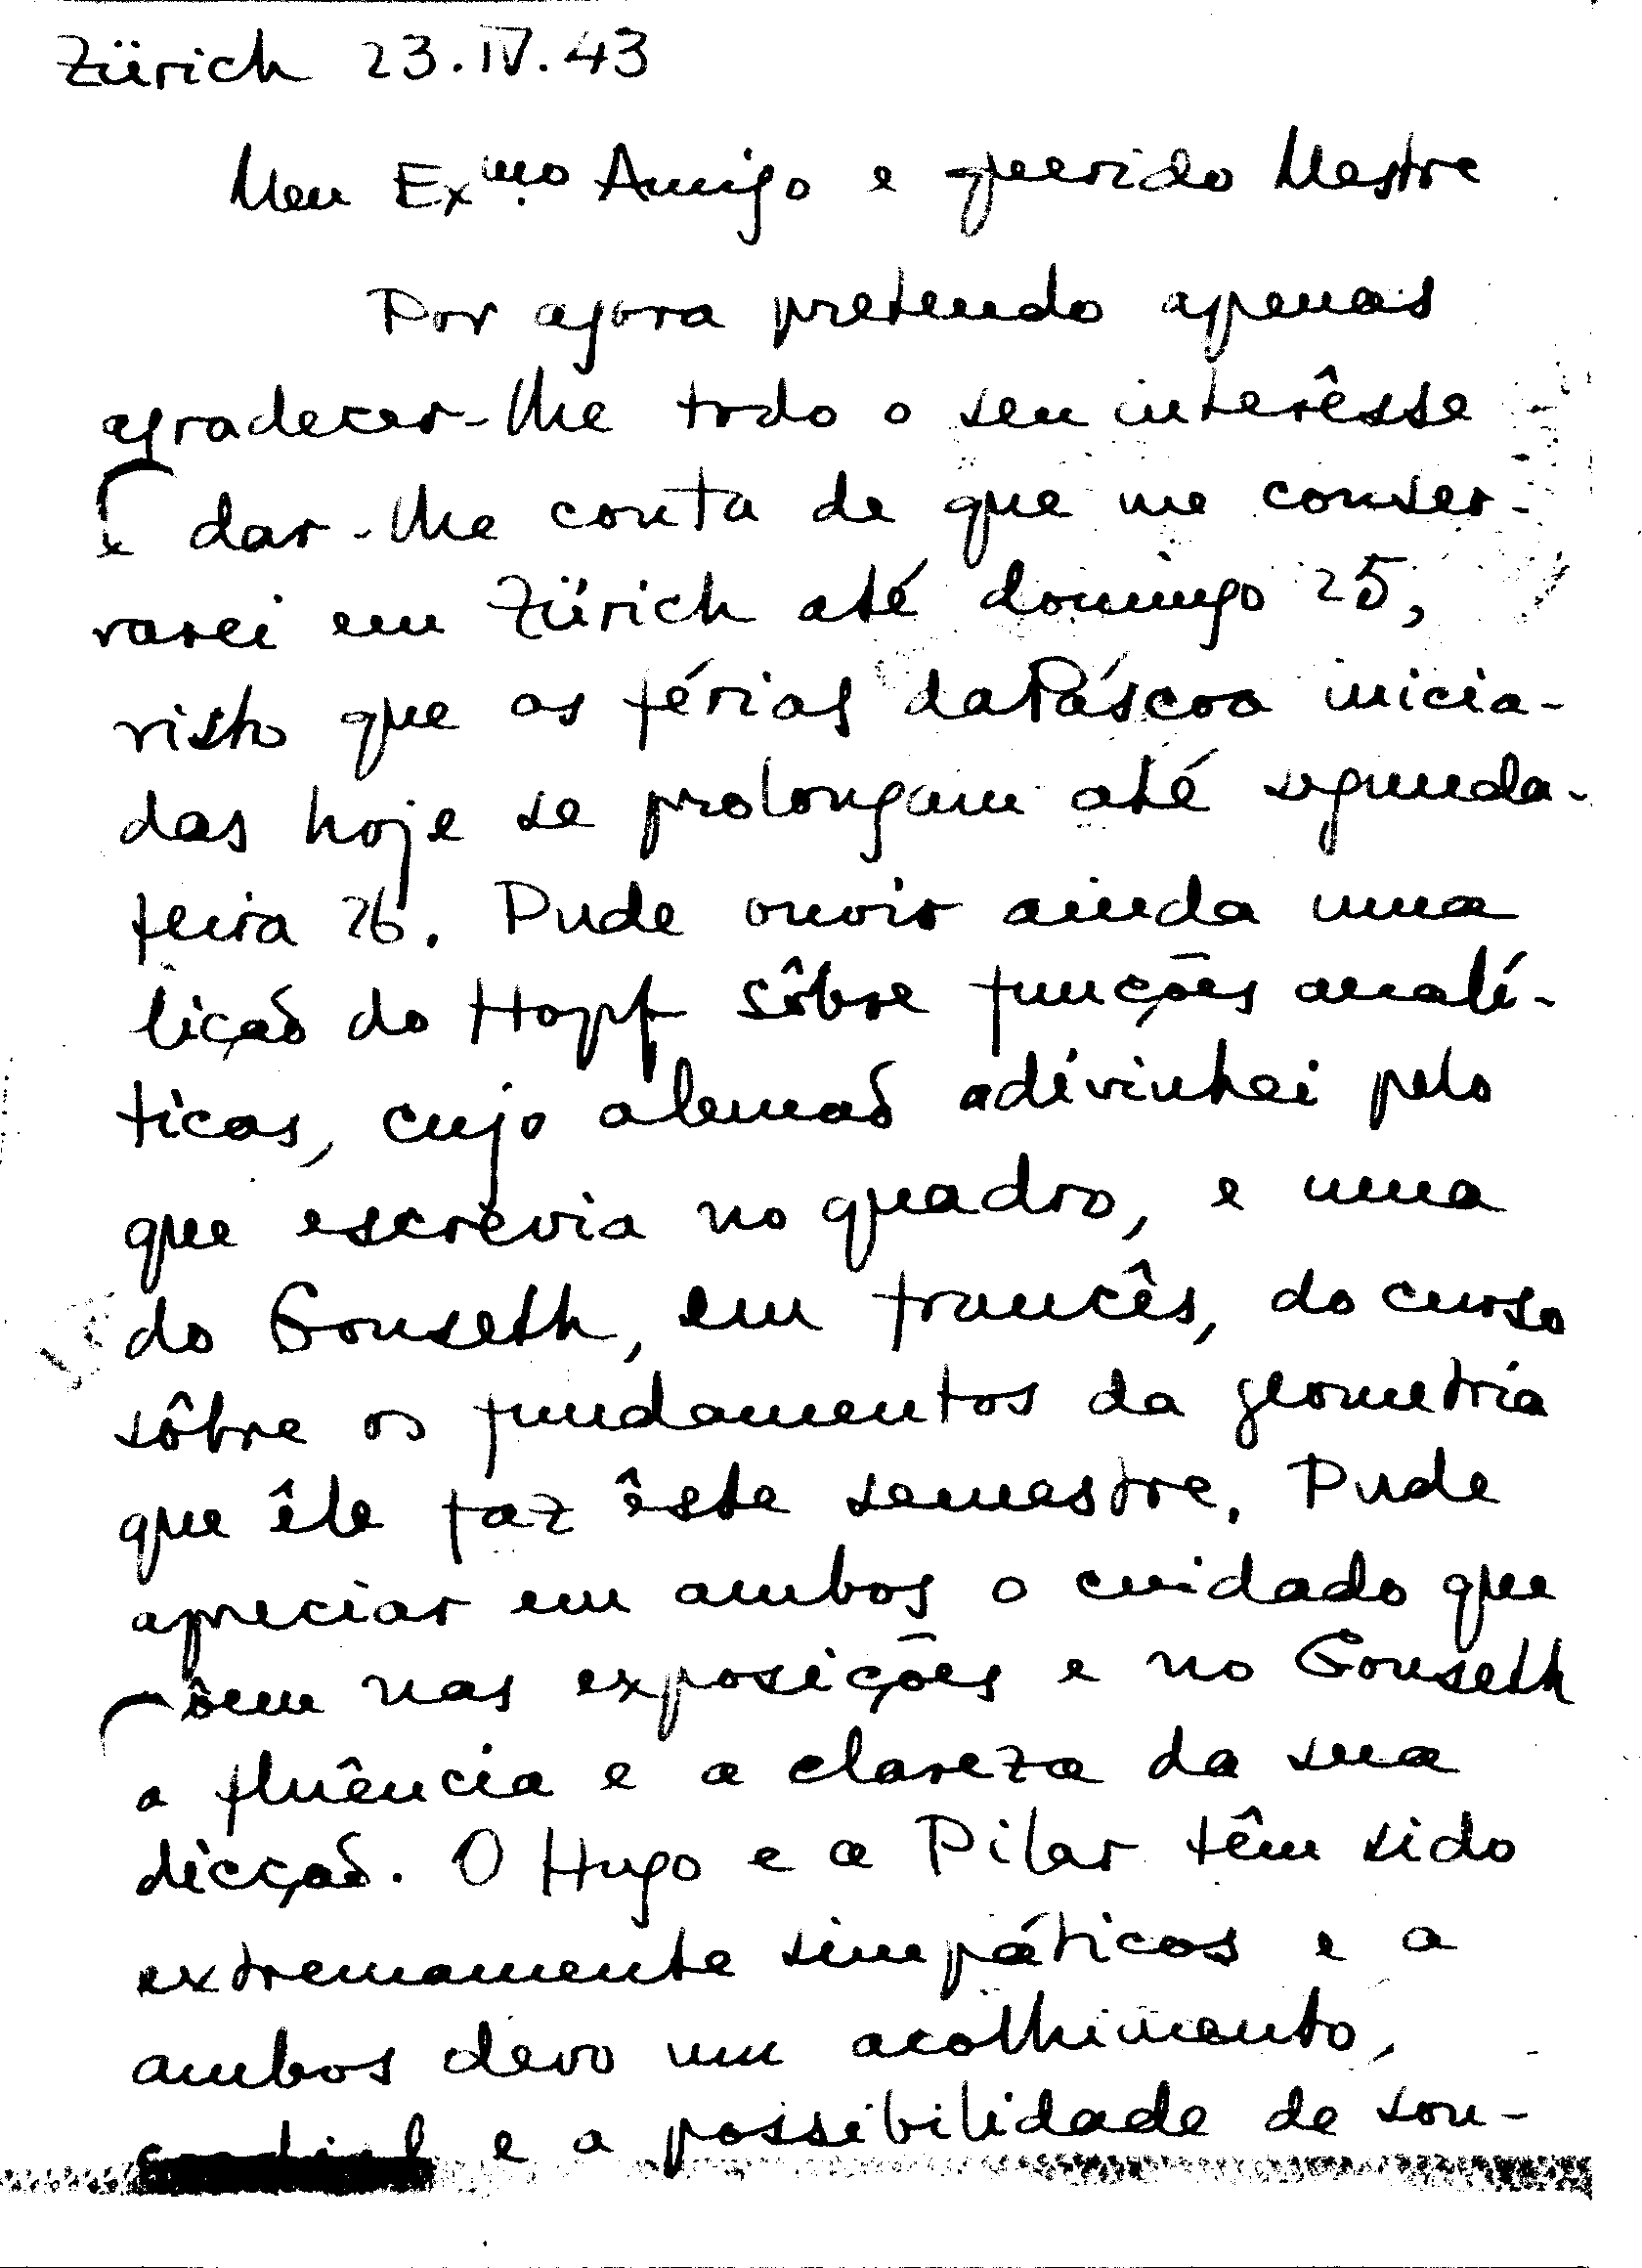 Zürich 23.IV.43
Meu Exmo. Amigo e querido Mestre
Por agora pretendo apenas
agradecer-lhe todo o seu interêsse
e dar-lhe conta de que me conser-
varei em Zürich até domingo 25,
visto que as férias da Páscoa inicia-
das hoje se prolongam até segunda-
feira 26. Pude ouvir ainda uma
lição do Hopf sôbre funções analí-
ticas, cujo alemão adivinhei pelo
que escrevia no quadro, e uma
do Gonseth, em francês, do curso
sôbre os fundamentos da geometria
que êle faz êste semestre. Pude
apreciar em ambos o cuidado que
põem nas exposições e no Gonseth
a fluência e a clareza da sua
dicção. O Hugo e a Pilar têm sido
extremamente simpáticos e a
ambos devo um acolhimento,
cordial e a possibilidade de sou-